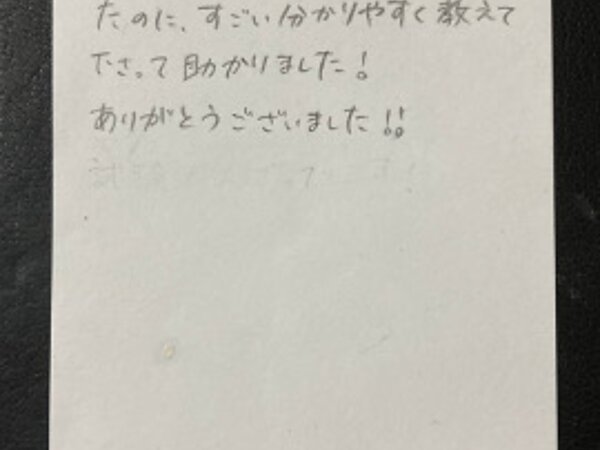 たのに、すごい分かりやすく教えて
下さって助かりました!
ありがとうございました!!